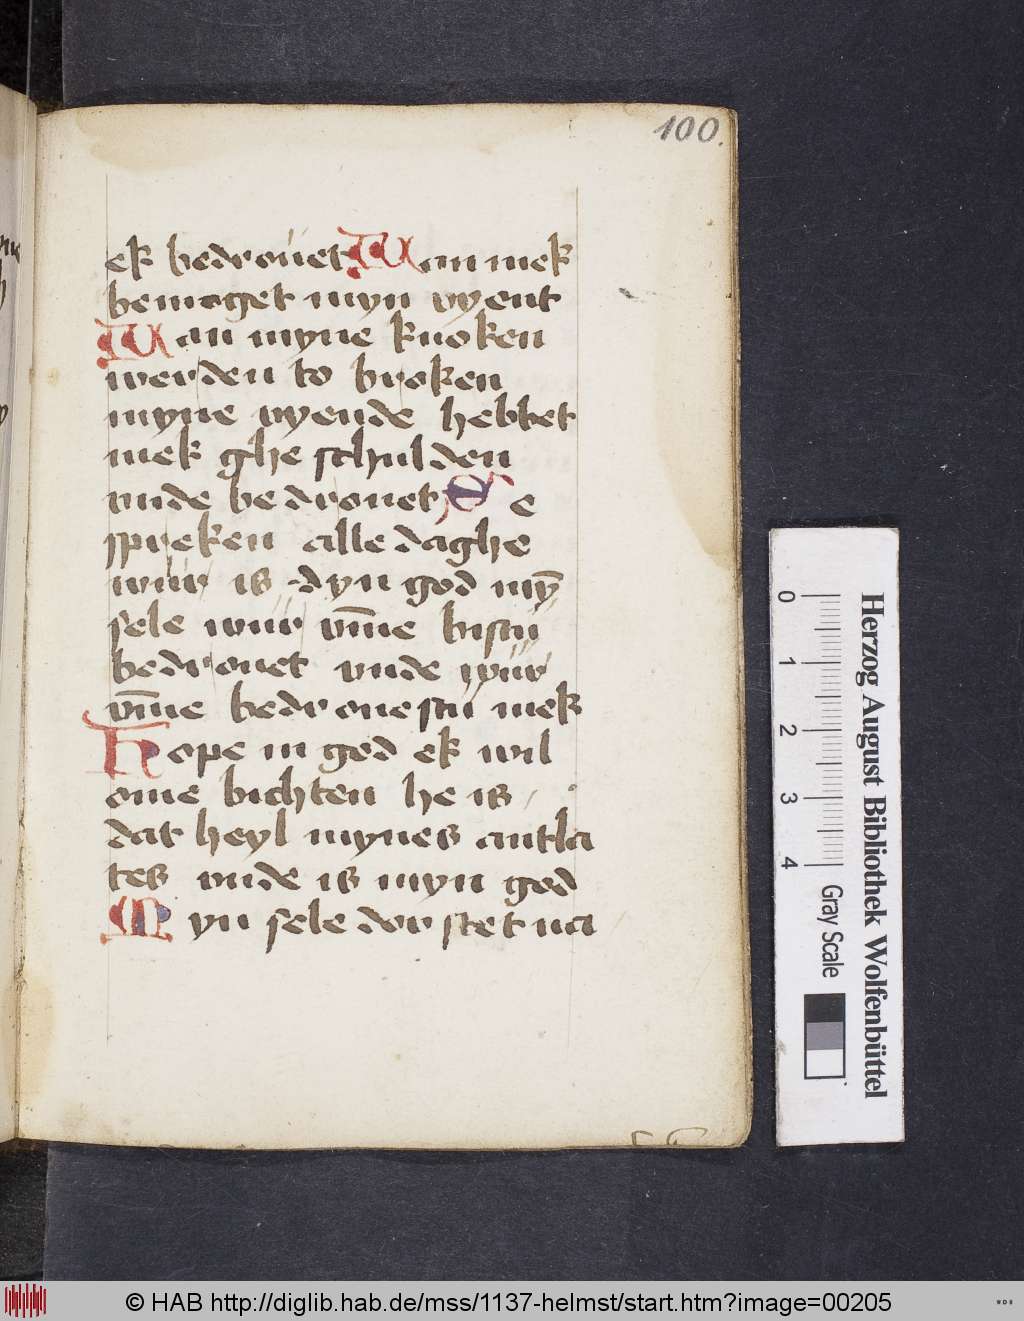 100.
ek bedrouet Wan mek
bemoget myn vyent
Wan myne knoken
werden to broken
myne vyende hebbet
mek ghe schulden
vnde bedrouet Se
spreken alle daghe
wur is dyn god mȳ
sele wur vm̄e bistu
bedrouet vnde wur
vm̄e bedrouestu mek
Hope in god ek wil
ome bichten he is
dat heyl mynes antla
tes vnde is myn god
Myn sele dorstet na
0 1 2 3 4
Gray Scale
Herzog August Bibliothek Wolfenbüttel
© HAB http://diglib.hab.de/mss/1137-helmst/start.htm?image=00205